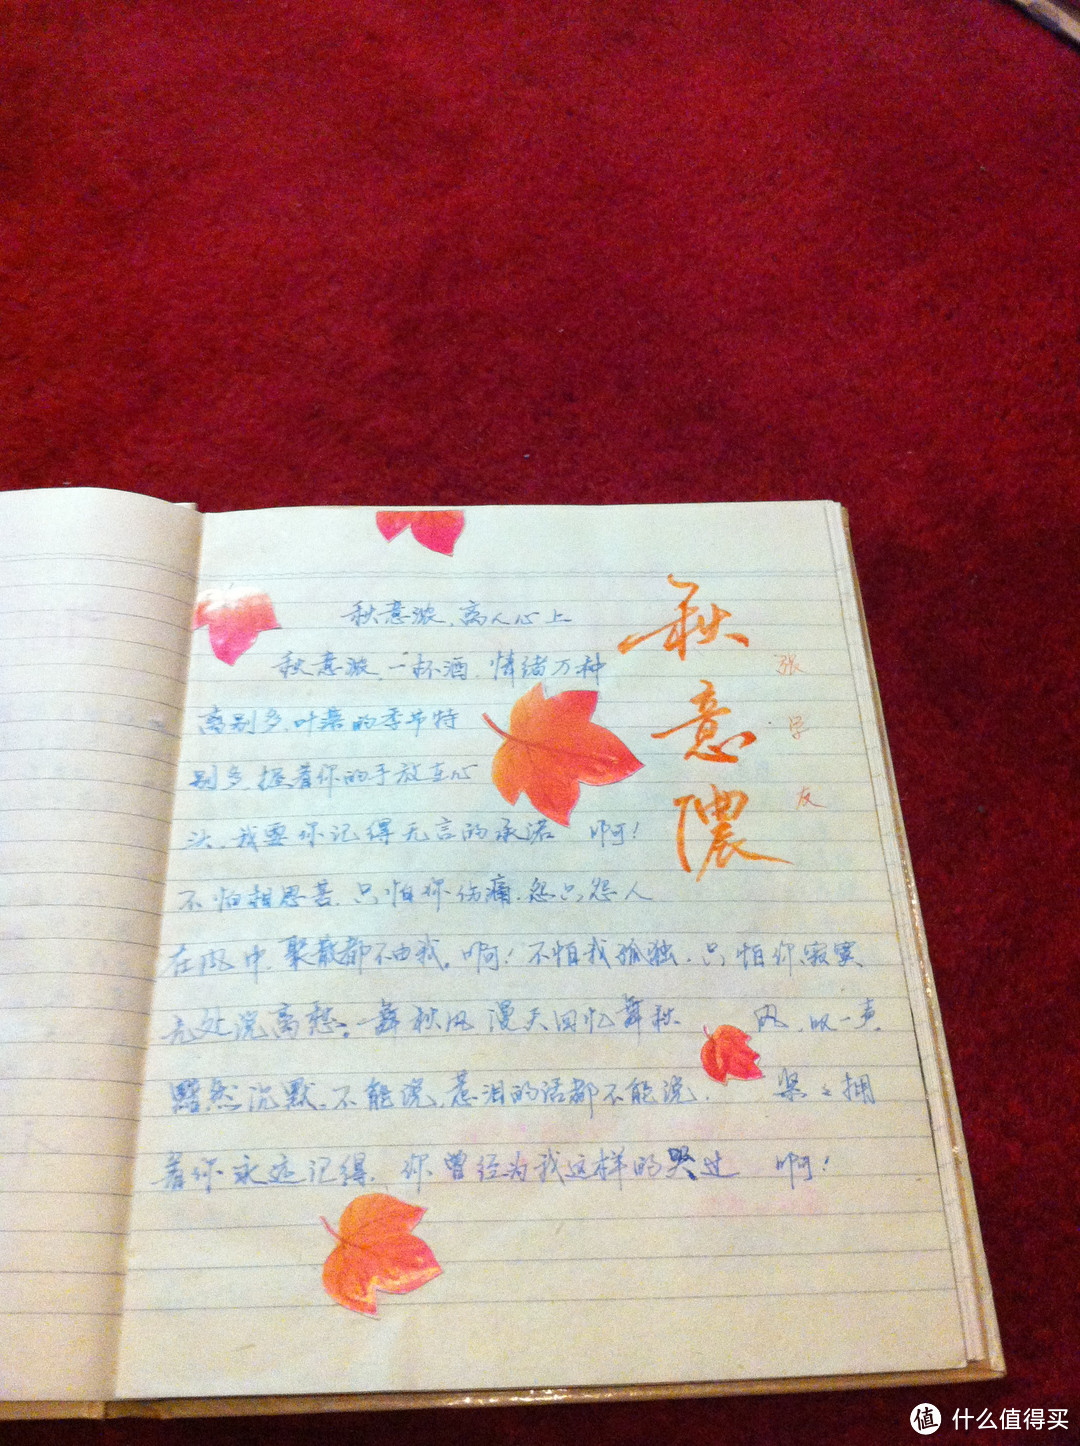 秋意濃
张学友
秋意浓,离人心上
秋意浓,一杯酒,情绪万种
离别多,叶落的季节特
别多,握着你的手放在心
头,我要你记得无言的承诺 啊!
不怕相思苦,只怕你伤痛,怨只怨人
在风中,聚散都不由我。啊!不怕我孤独,只怕你寂寞
无处说离愁。舞秋风 漫天回忆舞秋 风,叹一声
黯然沉默,不能说,惹泪的话都不能说, 紧紧拥
着你 永远记得,你曾经为我这样的哭过 啊!
值 什么值得买